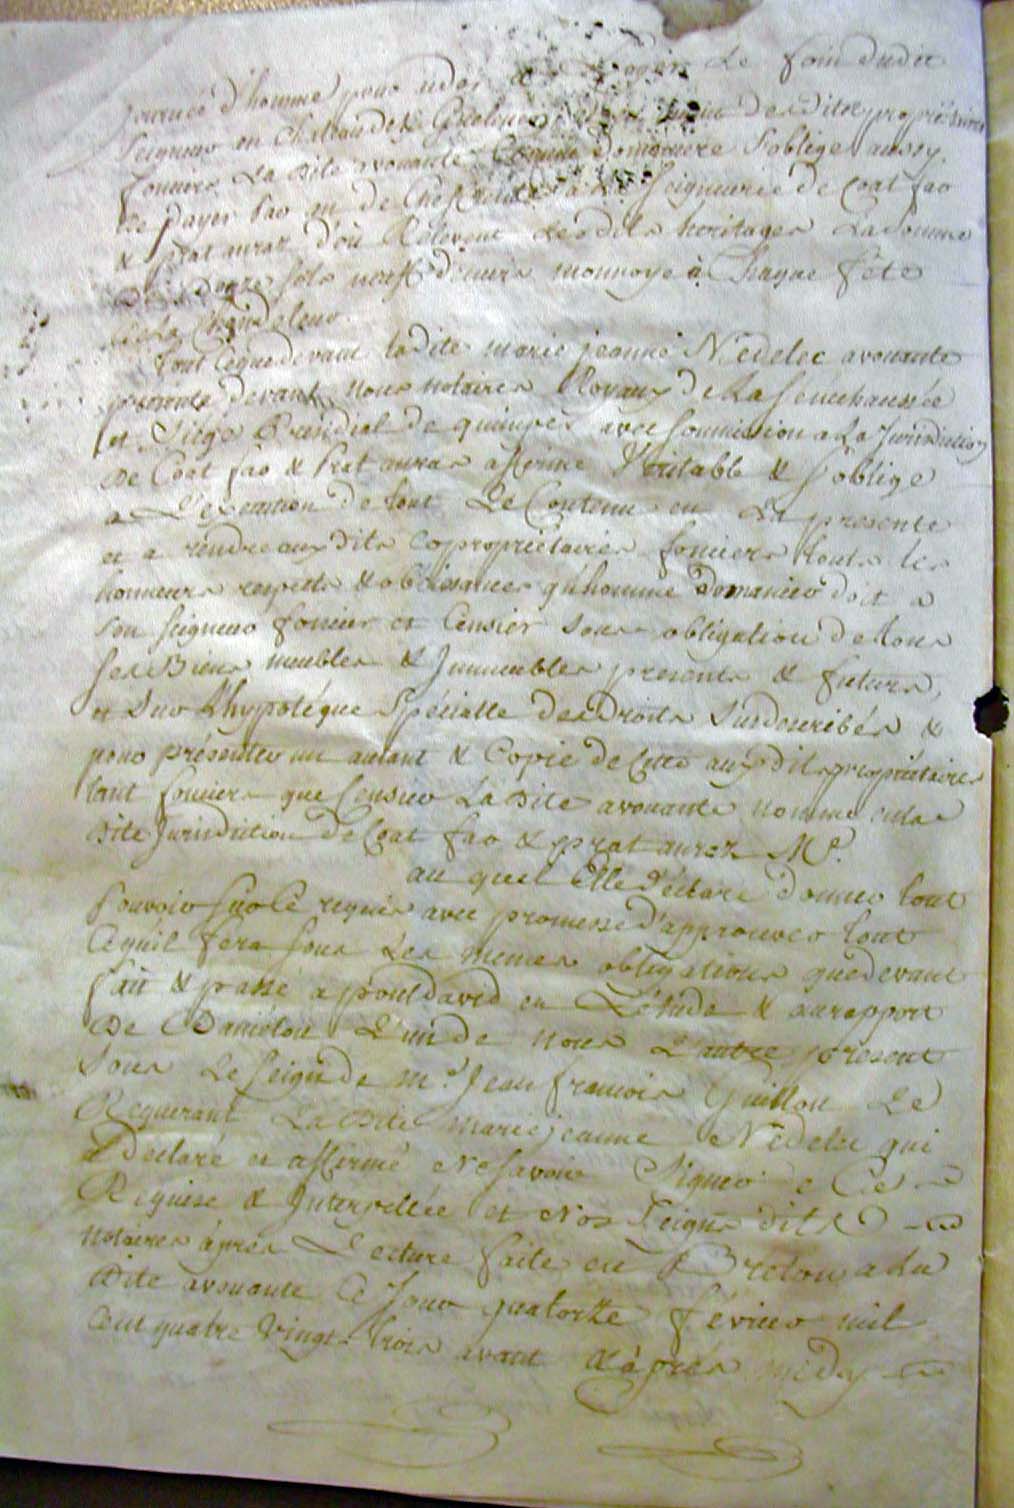 journée d'homme pour aider à loger le foin dudit
Seigneur en Chateau de desdites propriétaires
fonciers La dite avouante Comme domaniere s'oblige aussy
de payer par an de Chefrente à la Seigneurie de Coat fao
& prat anraz d'où Relevent lesdits héritages La Somme
de douze sols neuf deniers monnoye à Chaque fête
de la Chandeleur
Tout Ceque devant ladite marie jeanne Nedelec avouante
presente devant nous notaires Royaux de La senechaussée
et Siége Presidial de quimper avec soumission a La Jurisdiction
de Coat fao & Prat anras afferme Veritable & s'oblige
a L'execution de tout Le Contenu en La presente
et a rendre aux dits copropriétaires fonciers touts les
honneurs respects & obeissances qu'homme Domanier doit a
son seigneur foncier et Censier sous obligation de tous
ses Biens meubles & Immeubles presents & futurs,
et sur L'hypotéque Spécialle des Droits susdecribés &
pour présenter un autant & Copie de cette aux dits propriétaires
tant fonciers que Censier La Dite avouante nomme en la
dite Jurisdiction de Coat fao & prat anrez Me.
au quel Elle déclare donner tout
Pouvoir sur Ce requis avec promesse d'approuver tout
Cequil fera sous les memes obligations que devant
fait & passé a pouldavid en L'étude & au rapport
de Daniélou L'un de nous L'autre present
sous Le seign de me. Jean francois Guillou Le
Requerant La Dite marie jeanne Nedelec qui
a declaré et affirmé ne savoir Signer de Ce
Requise & Interpellée et nos Seigns dits
notaires àprés Lecture faite en Breton a La
Dite avouante Ce Jour quatorze février mil
Cent quatre vingt trois avant & àprés midy